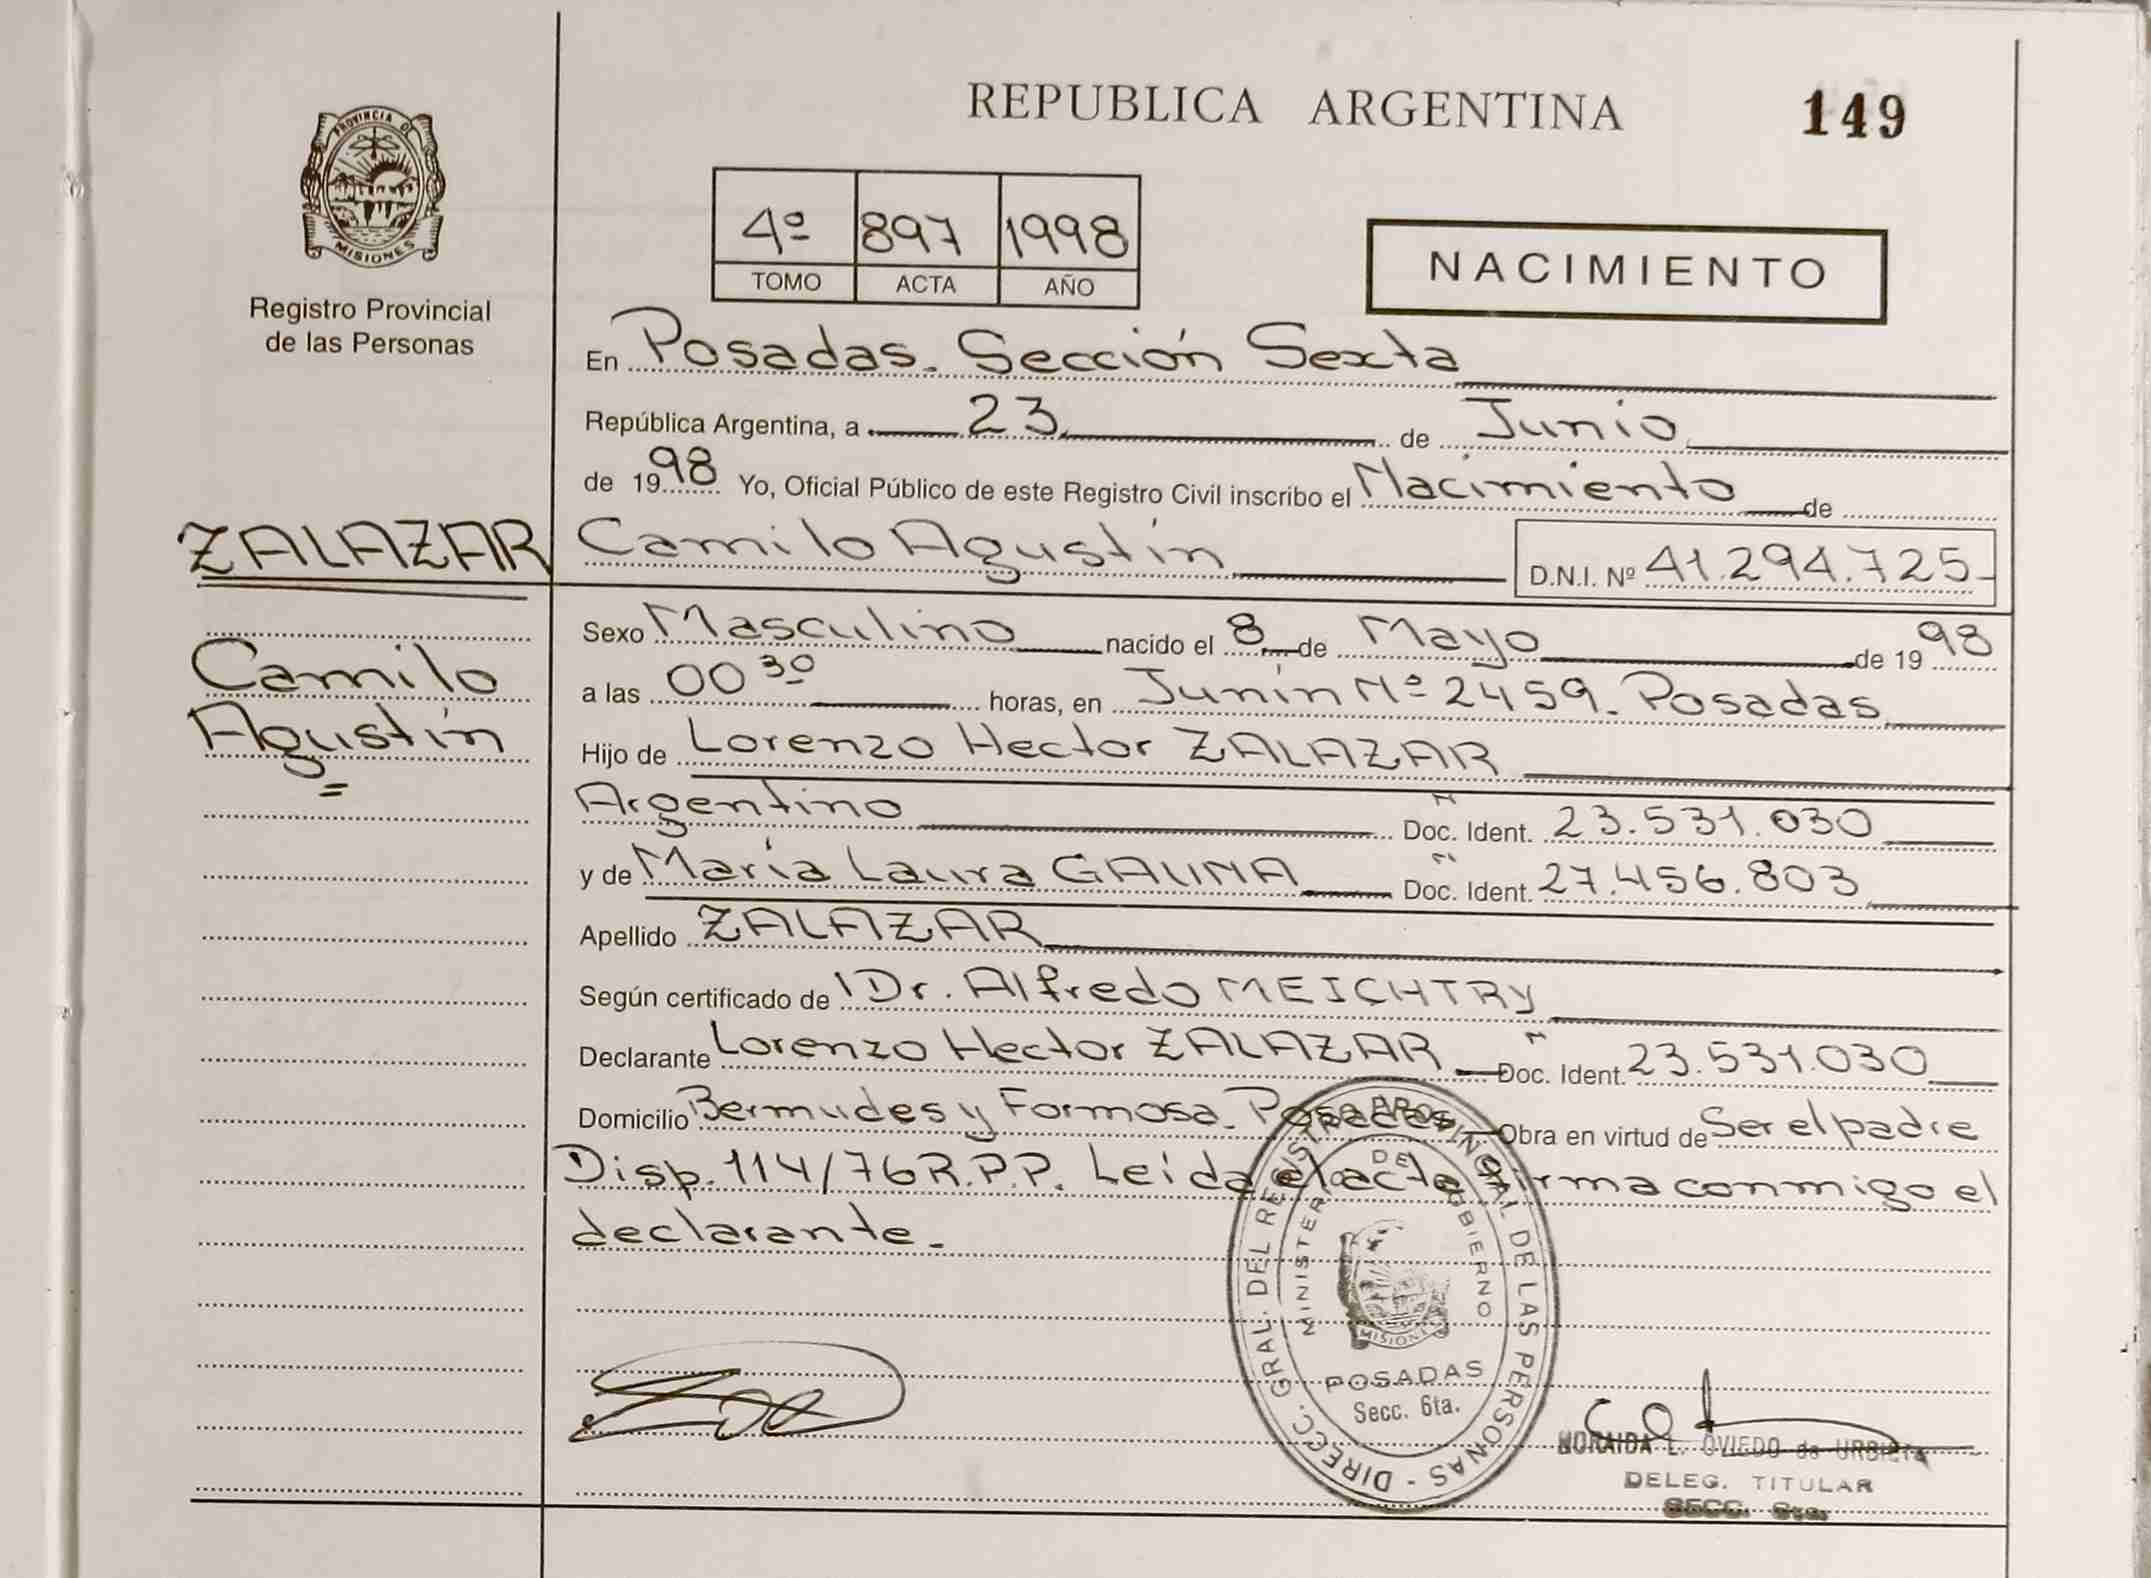 REPUBLICA ARGENTINA
149
PROVINCIA DE
MISIONES
Registro Provincial
de las Personas
4º 897 1998
TOMO ACTA AÑO
NACIMIENTO
En Posadas. Sección Sexta
República Argentina, a 23 de Junio
de 1998 Yo, Oficial Público de este Registro Civil inscribo el Nacimiento de
ZALAZAR Camilo Agustín D.N.I. Nº 41.294.725
Camilo
Agustín
Sexo Masculino nacido el 8 de Mayo de 1998
a las 00 30 horas, en Junín Nº 2459. Posadas
Hijo de Lorenzo Hector ZALAZAR
Argentino Doc. Ident. 23.531.030
y de María Laura GAUNA Doc. Ident. 27.456.803
Apellido ZALAZAR
Según certificado de Dr. Alfredo MEICHTRY
Declarante Lorenzo Hector ZALAZAR Doc. Ident. 23.531.030
Domicilio Bermudes y Formosa. Posadas Obra en virtud de Ser el padre
Disp. 114/76 R.P.P. Leida el acta firma conmigo el
declarante.
DIRECC. GRAL. DEL REGISTRO PROVINCIAL DE LAS PERSONAS
MINISTERIO DE GOBIERNO
MISIONES
POSADAS
Secc. 6ta.
NORAIDA L. OVIEDO de URBIETA
DELEG. TITULAR
SECC. 6ta.